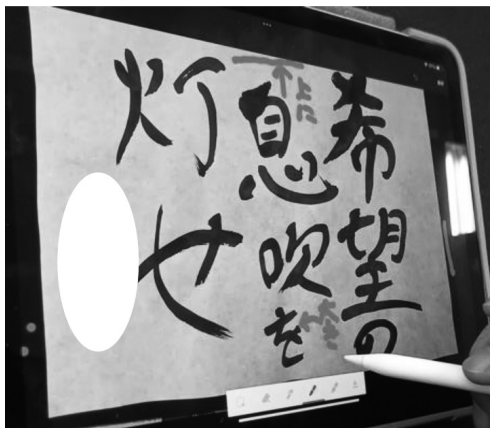 希望の
息吹を
灯せ